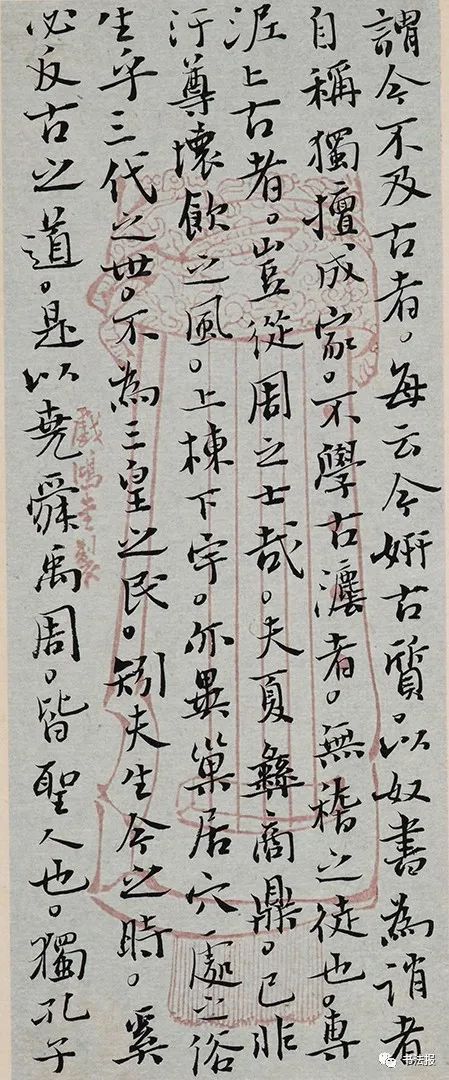 謂今不及古者。每云今妍古質。以奴書為誚者
自稱獨擅成家。不學古灋者。無稽之徒也。專
泥上古者。豈從周之士哉。夫夏彝商鼎。已非
汙尊壞飲之風。上棟下宇。亦異巢居穴處之俗
生乎三代之世。不為三皇之民。矧夫生今之時。奚
必反古之道。是以堯舜禹周。皆聖人也。獨孔子
戲鴻堂製
书法报